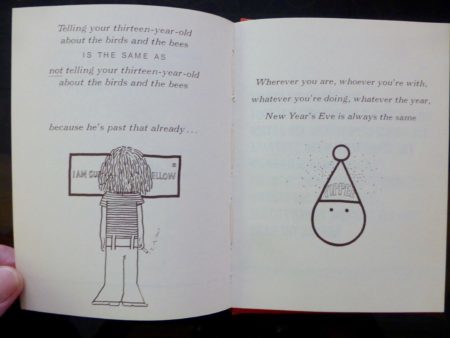 Telling your thirteen-year-old
about the birds and the bees
IS THE SAME AS
not telling your thirteen-year-old
about the birds and the bees
because he's past that already...
I AM CUR
ELLOW
Wherever you are, whoever you're with,
whatever you're doing, whatever the year,
New Year's Eve is always the same